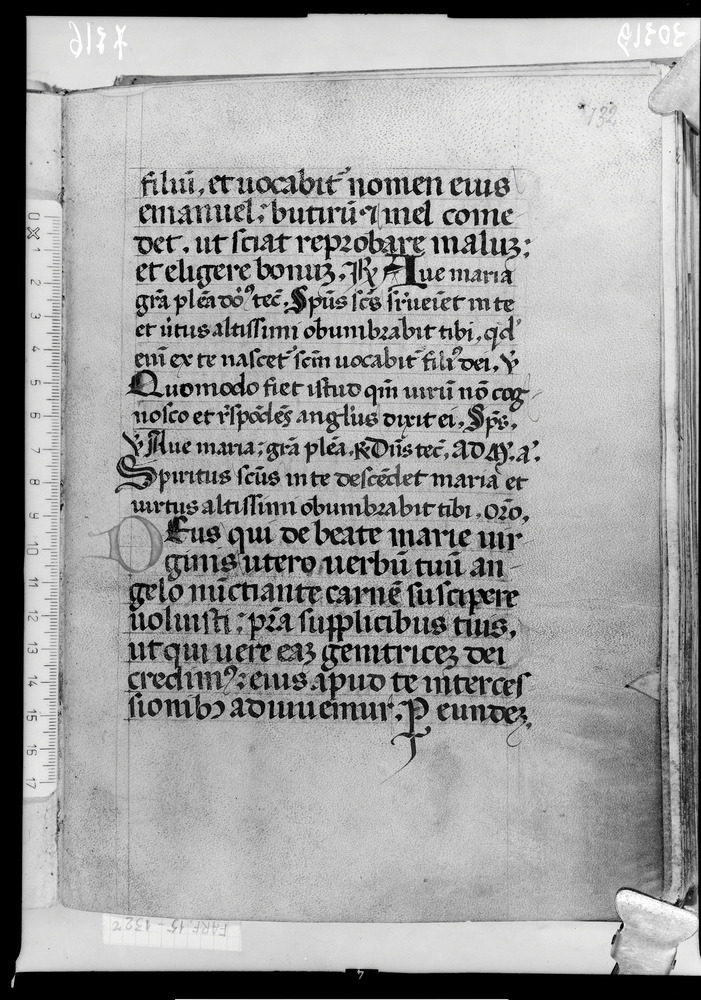 132
filiū, et uocabit᷑ nomen eius
emanuel; butirū ⁊ mel come
det, ut sciat reprobare maluꝫ;
et eligere bonuꝫ, ℟ Aue maria
grā plēa dō⁹ tec̄, Spūs sc̄s
et ūtus altissimi obumbrabit tibi, qd̓
eni ex te nascet᷑ scm̄ uocabit᷑ fili⁹ dei, ℣
Quomodo fiet istud qm̄ uirū nō cog
nosco et angl̄us dixit ei, Sp̄s,
℣ Aue maria; grā plēa, ℟ Dn̄s tec̄, AD
Spiritus sc̄us in te descēdet maria et
uirtus altissimi obumbrabit tibi, Orō,
DEus qui de beate marie uir
ginis utero uerbū tuū an
gelo nūctiante carnē suscipere
uoluisti; pr̄a supplicibus tuis,
ut qui uere eaꝫ genitriceꝫ dei
credim⁹; eius apud te interces
sionibꝫ adiuuemur, Ꝑ eundeꝫ,
0 1 2 3 4 5 6 7 8 9 10 11 12 13 14 15 16 17
7316
30319
FARF. 15 - 132ʳ